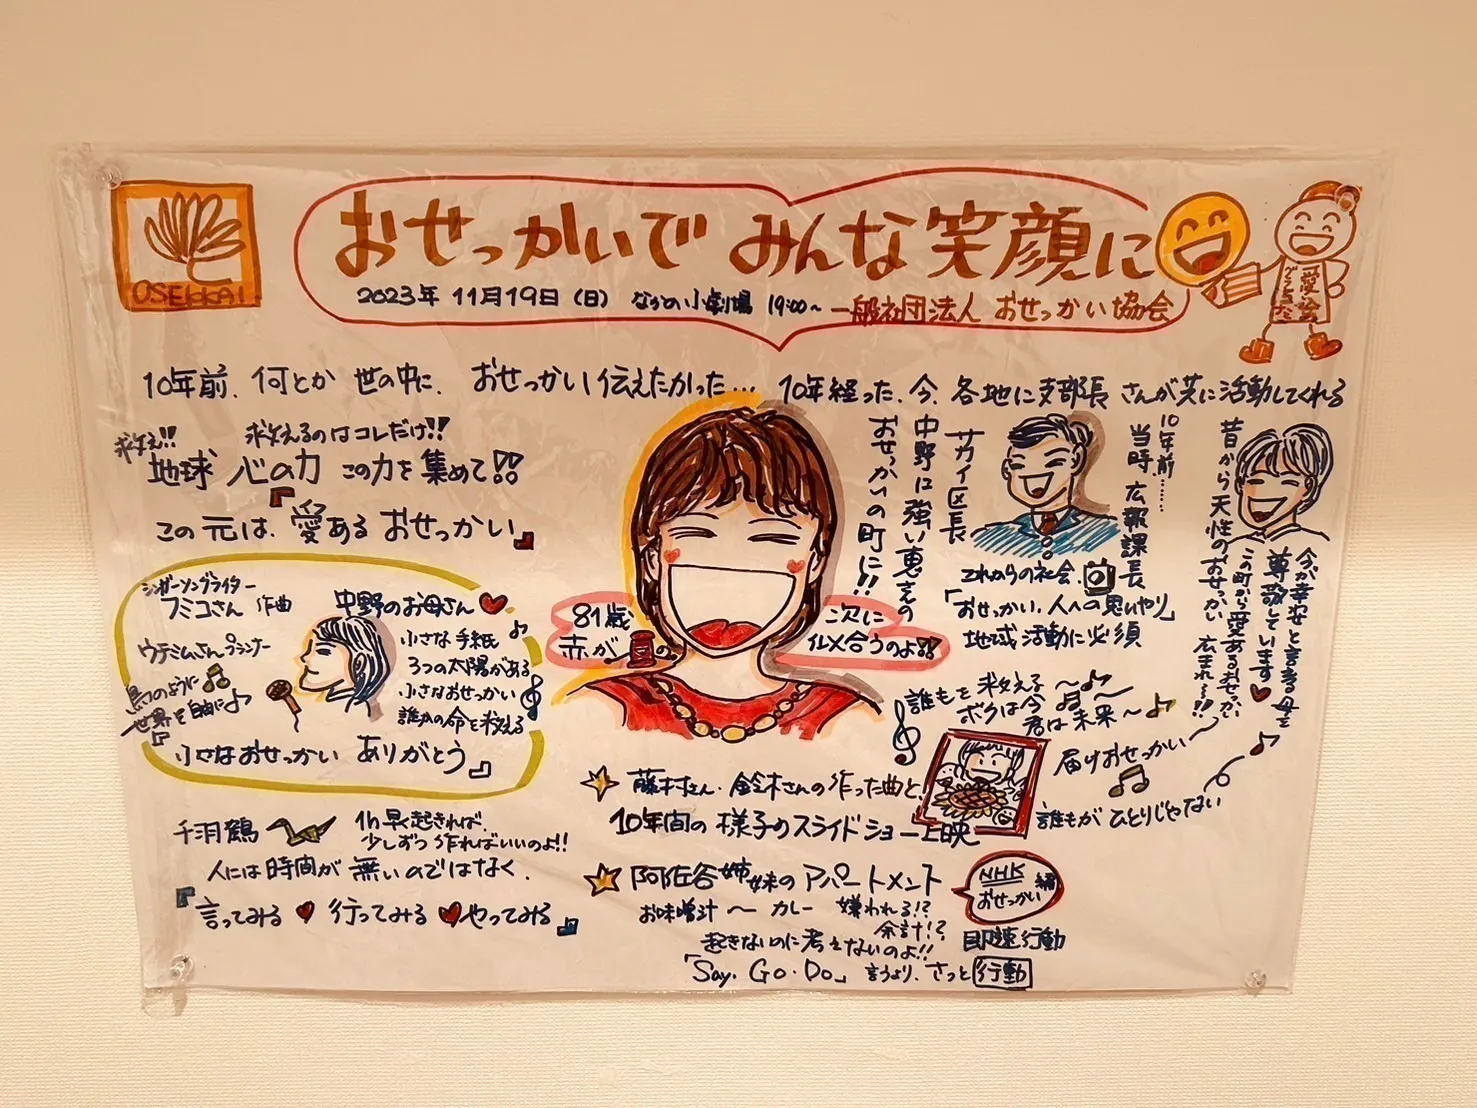 OSEKKAI
おせっかいで みんな笑顔に
2023年 11月19日（日） なかの小劇場 19:00〜 一般社団法人 おせっかい協会
愛・絵
10年前、何とか 世の中に、おせっかい伝えたかった… 10年経った、今、各地に支部長 さんが共に活動してくれる
救え!! 救えるのはコレだけ!!
地球 心の力 この力を集めて!!
この 元は、『愛ある おせっかい』
シンガーソングライター
フミコさん 作曲
中野のお母さん
ウテミムさん プランナー
小さな手紙
3つの太陽がある
小さなおせっかい
誰かの命を救える
鳥のように
世界を自由に
小さなおせっかい ありがとう』
81歳
赤が
次に
似合うのよ!!
中野に強い恵さんの
おせっかいの町に!!
サカイ区長
10年前……
当時、広報課長
これからの社会、
「おせっかい、人への思いやり」
地域活動に必須
昔から天性のおせっかい
今が幸せと言える母を
尊敬しています
この町から愛あるおせっかい
広まれ〜!!
誰もを救える〜
ボクは今〜
君は未来〜
届けおせっかい〜
誰もが ひとりじゃない
藤村さん・鈴木さんの作った曲と、
10年間の様子のスライドショー上映
千羽鶴
1h早起きれば、
少しずつ作ればいいのよ!!
人には時間が 無いのではなく、
『言ってみる 行ってみる やってみる』
阿佐谷姉妹のアパートメント
NHK
おせっかい編
お味噌汁 〜 カレー 嫌われる!?
余計!?
起きないのに考えないのよ!!
即速行動
「Say. Go. Do」 言うより、さっと 行動